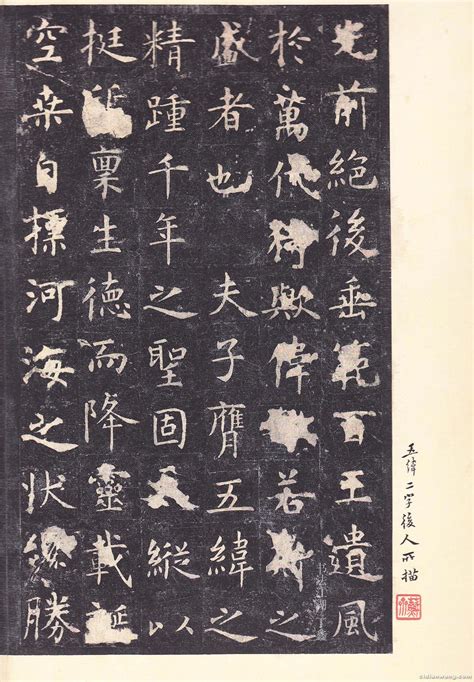 光前絕後垂範百王遺風
於萬代猗歟偉若斯之
盛者也夫子膺五緯之
精踵千年之聖固縱以
挺稟生德而降靈載誕
空桑自標河海之狀纔勝
五緯二字後人所描